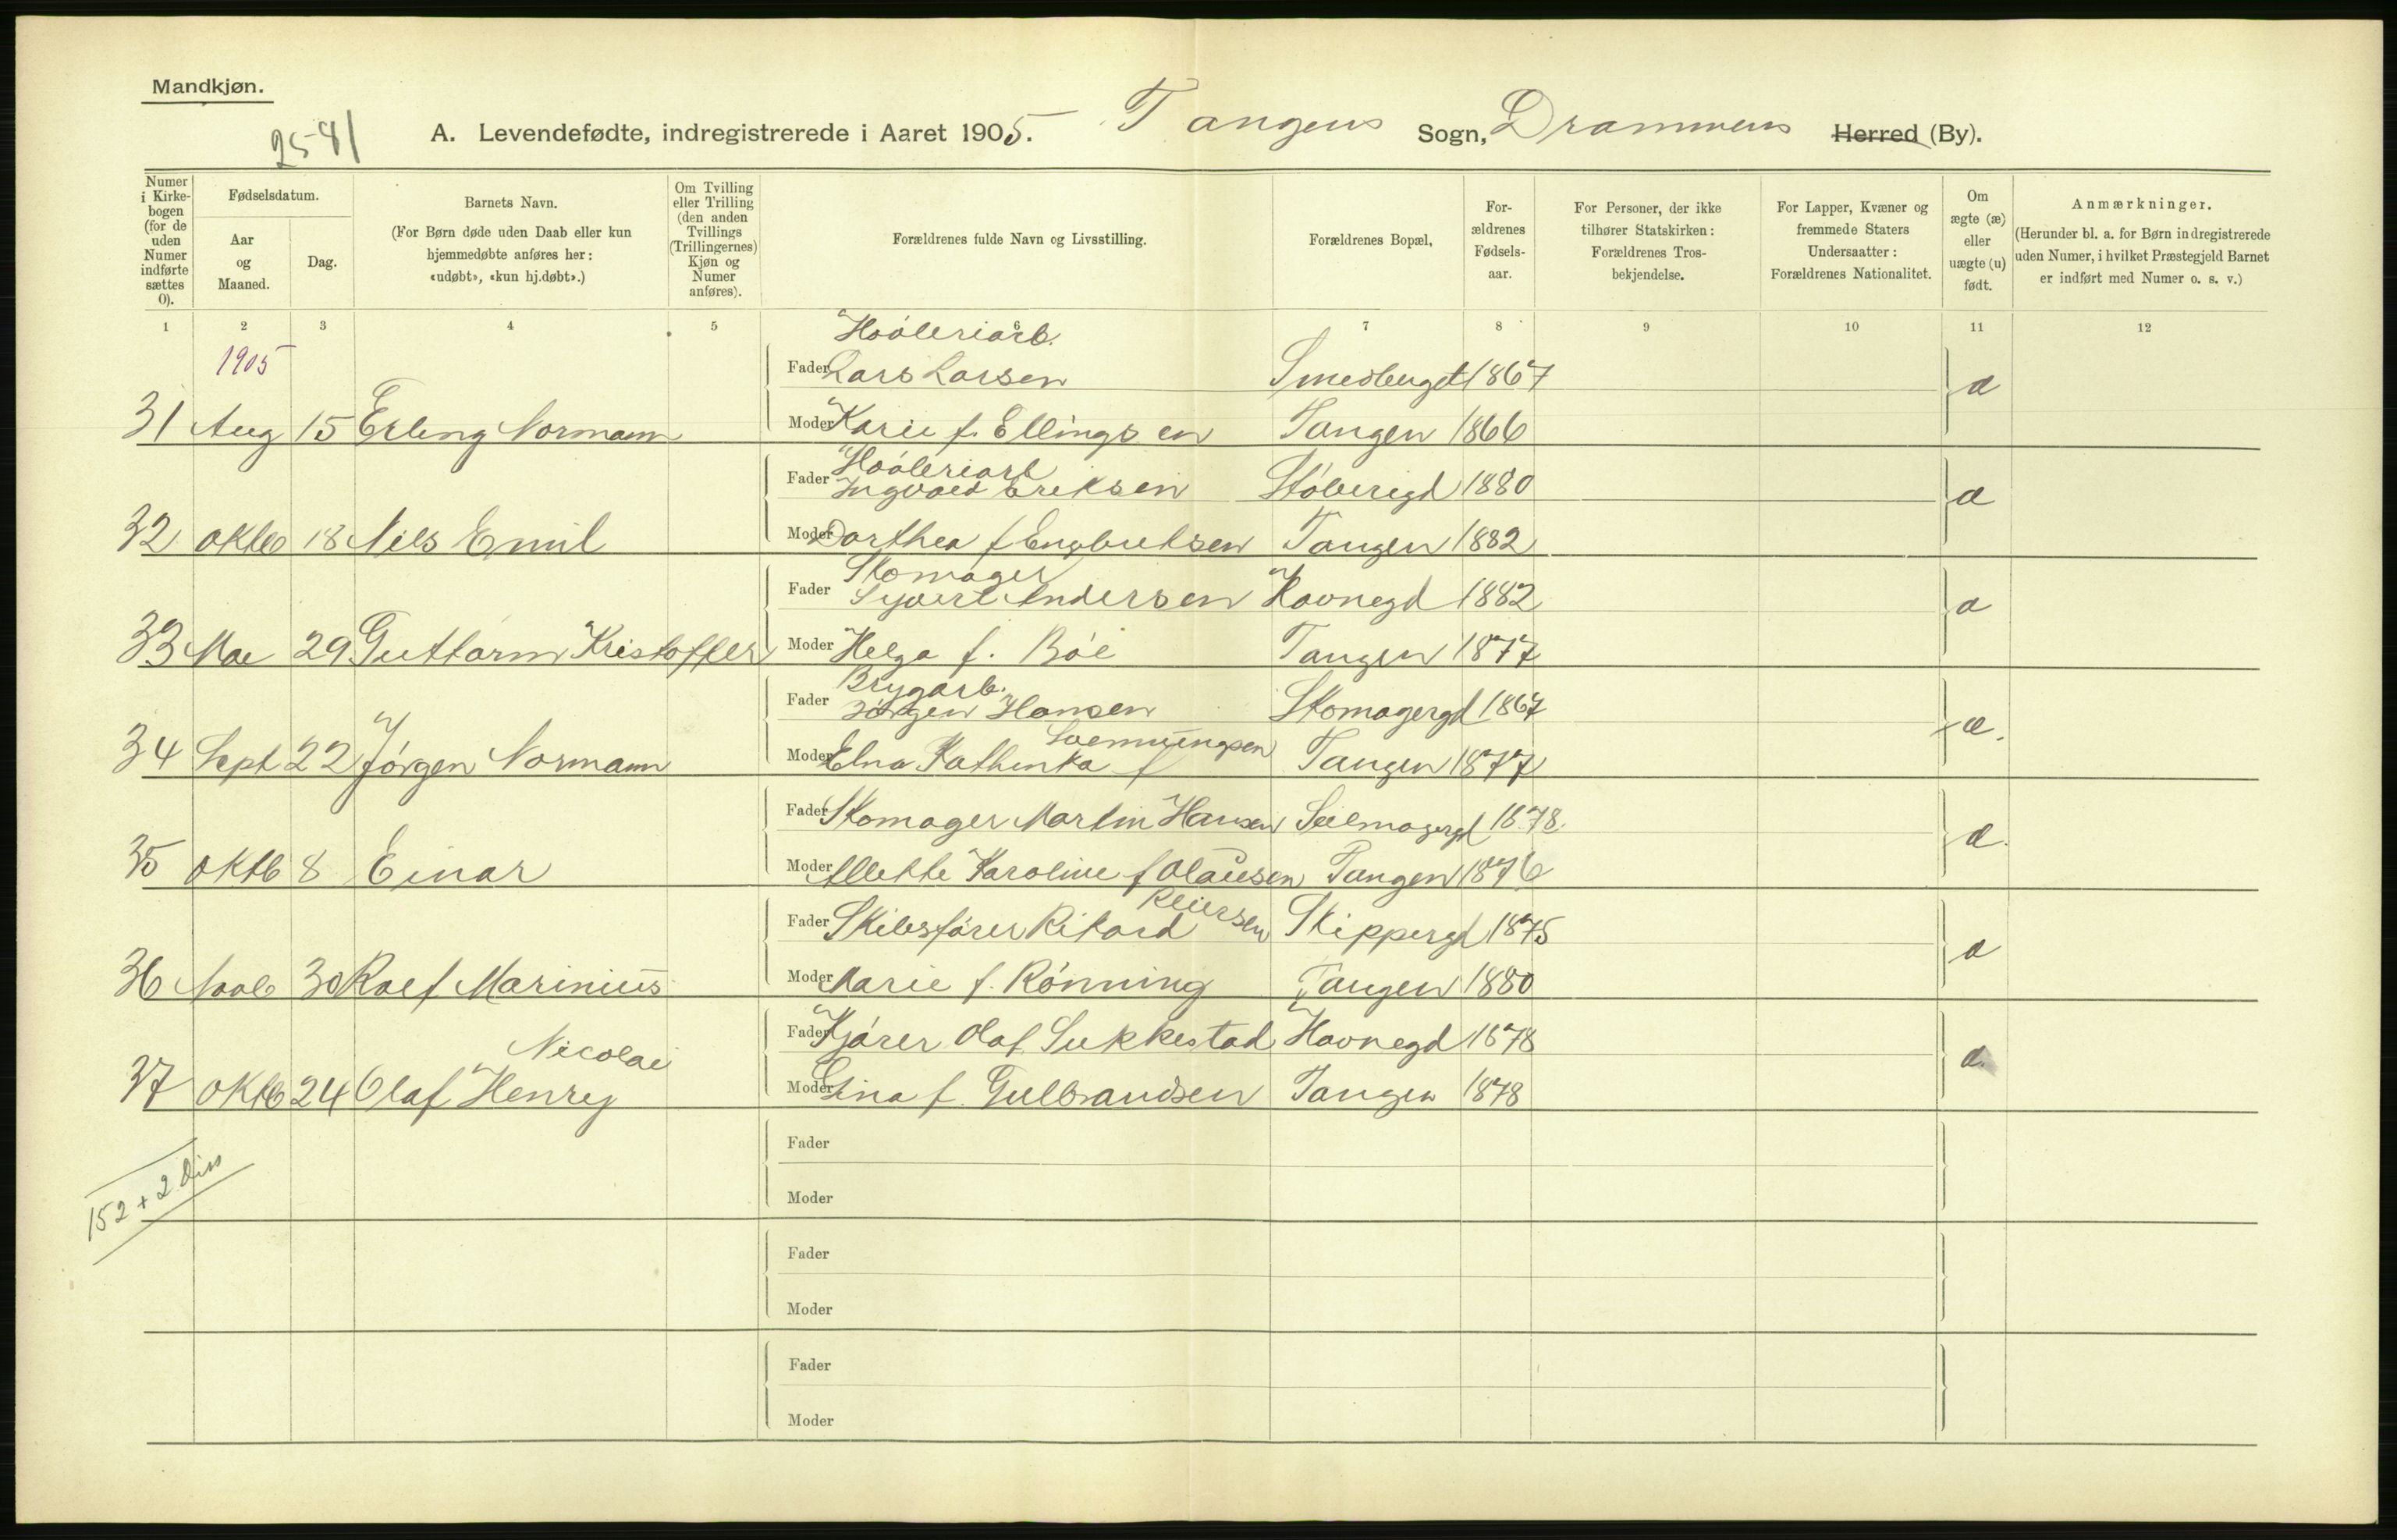 Mandkjøn.
25-41
A. Levendefødte, indregistrerede i Aaret 1905. Tangens Sogn, Drammens Herred (By).
Numer i Kirke-bogen (for de uden Numer indførte sættes 0).
Fødselsdatum.
Aar og Maaned.
Dag.
Barnets Navn.
(For Børn døde uden Daab eller kun hjemmedøbte anføres her: «udøbt», «kun hj.døbt».)
Om Tvilling eller Trilling (den anden Tvillings (Trillingernes) Kjøn og Numer anføres).
Forældrenes fulde Navn og Livsstilling.
Forældrenes Bopæl,
For-ældrenes Fødsels-aar.
For Personer, der ikke tilhører Statskirken: Forældrenes Tros-bekjendelse.
For Lapper, Kvæner og fremmede Staters Undersaatter: Forældrenes Nationalitet.
Om ægte (æ) eller uægte (u) født.
Anmærkninger.
(Herunder bl. a. for Børn indregistrerede uden Numer, i hvilket Præstegjeld Barnet er indført med Numer o. s. v.)
1 2 3 4 5 6 7 8 9 10 11 12
1905
Høvleriarb.
Fader Lars Larsen Smedbuget 1867 æ
31 Aug 15 Erling Normann Moder Karie f. Ellingsen Tangen 1866
Høvleriarb
Fader Ingvald Eriksen Støberigd 1880 æ
32 Oktb 18 Nils Emil Moder Dorthea f Engbretsen Tangen 1882
Skomager
Fader Syvert Andersen Havnegd 1882 æ
33 Mai 29 Guttorm Kristoffer Moder Helga f. Bøe Tangen 1877
Brygarb.
Fader Jørgen Hansen Skomagergd 1867 æ.
34 Sept 22 Jørgen Normann Moder Elna Kathinka f Svenningsen Tangen 1877
Fader Skomager Martin Hansen Seilmagergd 1878. æ.
35 Oktb 8 Einar Moder Allette Karoline f Olausen Tangen 1876
Fader Skibsfører Rikard Reiersen Skippergd 1875 æ
36 Novb 30 Rolf Marinius Moder Marie f. Rønning Tangen 1880
Fader Kjører Olaf Sukkestad Havnegd 1878 æ.
Nicolai
37 Oktb 24 Olaf Henry Moder Gina f. Gulbrandsen Tangen 1878
Fader
152 + 2 Diss
Moder
Fader
Moder
Fader
Moder